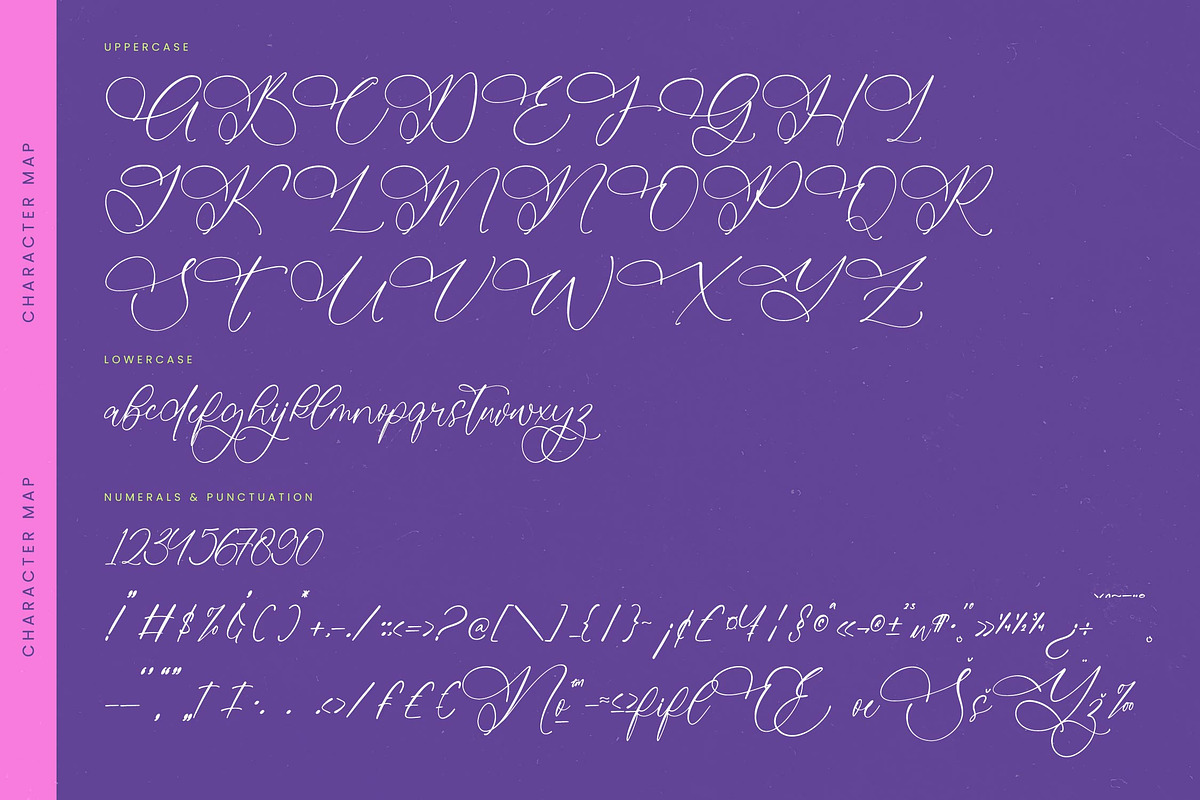 CHARACTER MAP
CHARACTER MAP
UPPERCASE
A B C D E F G H I
J K L M N O P Q R
S T U V W X Y Z
LOWERCASE
abcdefghijklmnopqrstuvwxyz
NUMERALS & PUNCTUATION
1234567890
!"#$%&'()*+,-./:;<=>?@[\]_{|}~¡¢£¤¥¦§©ª«¬®±²³µ¶·¹º»¼½¾¿÷
–—‘’‚“”„†‡•…‹›⁄ƒ₤€№™−≈≤≥fiflŒœŠšŸž‰